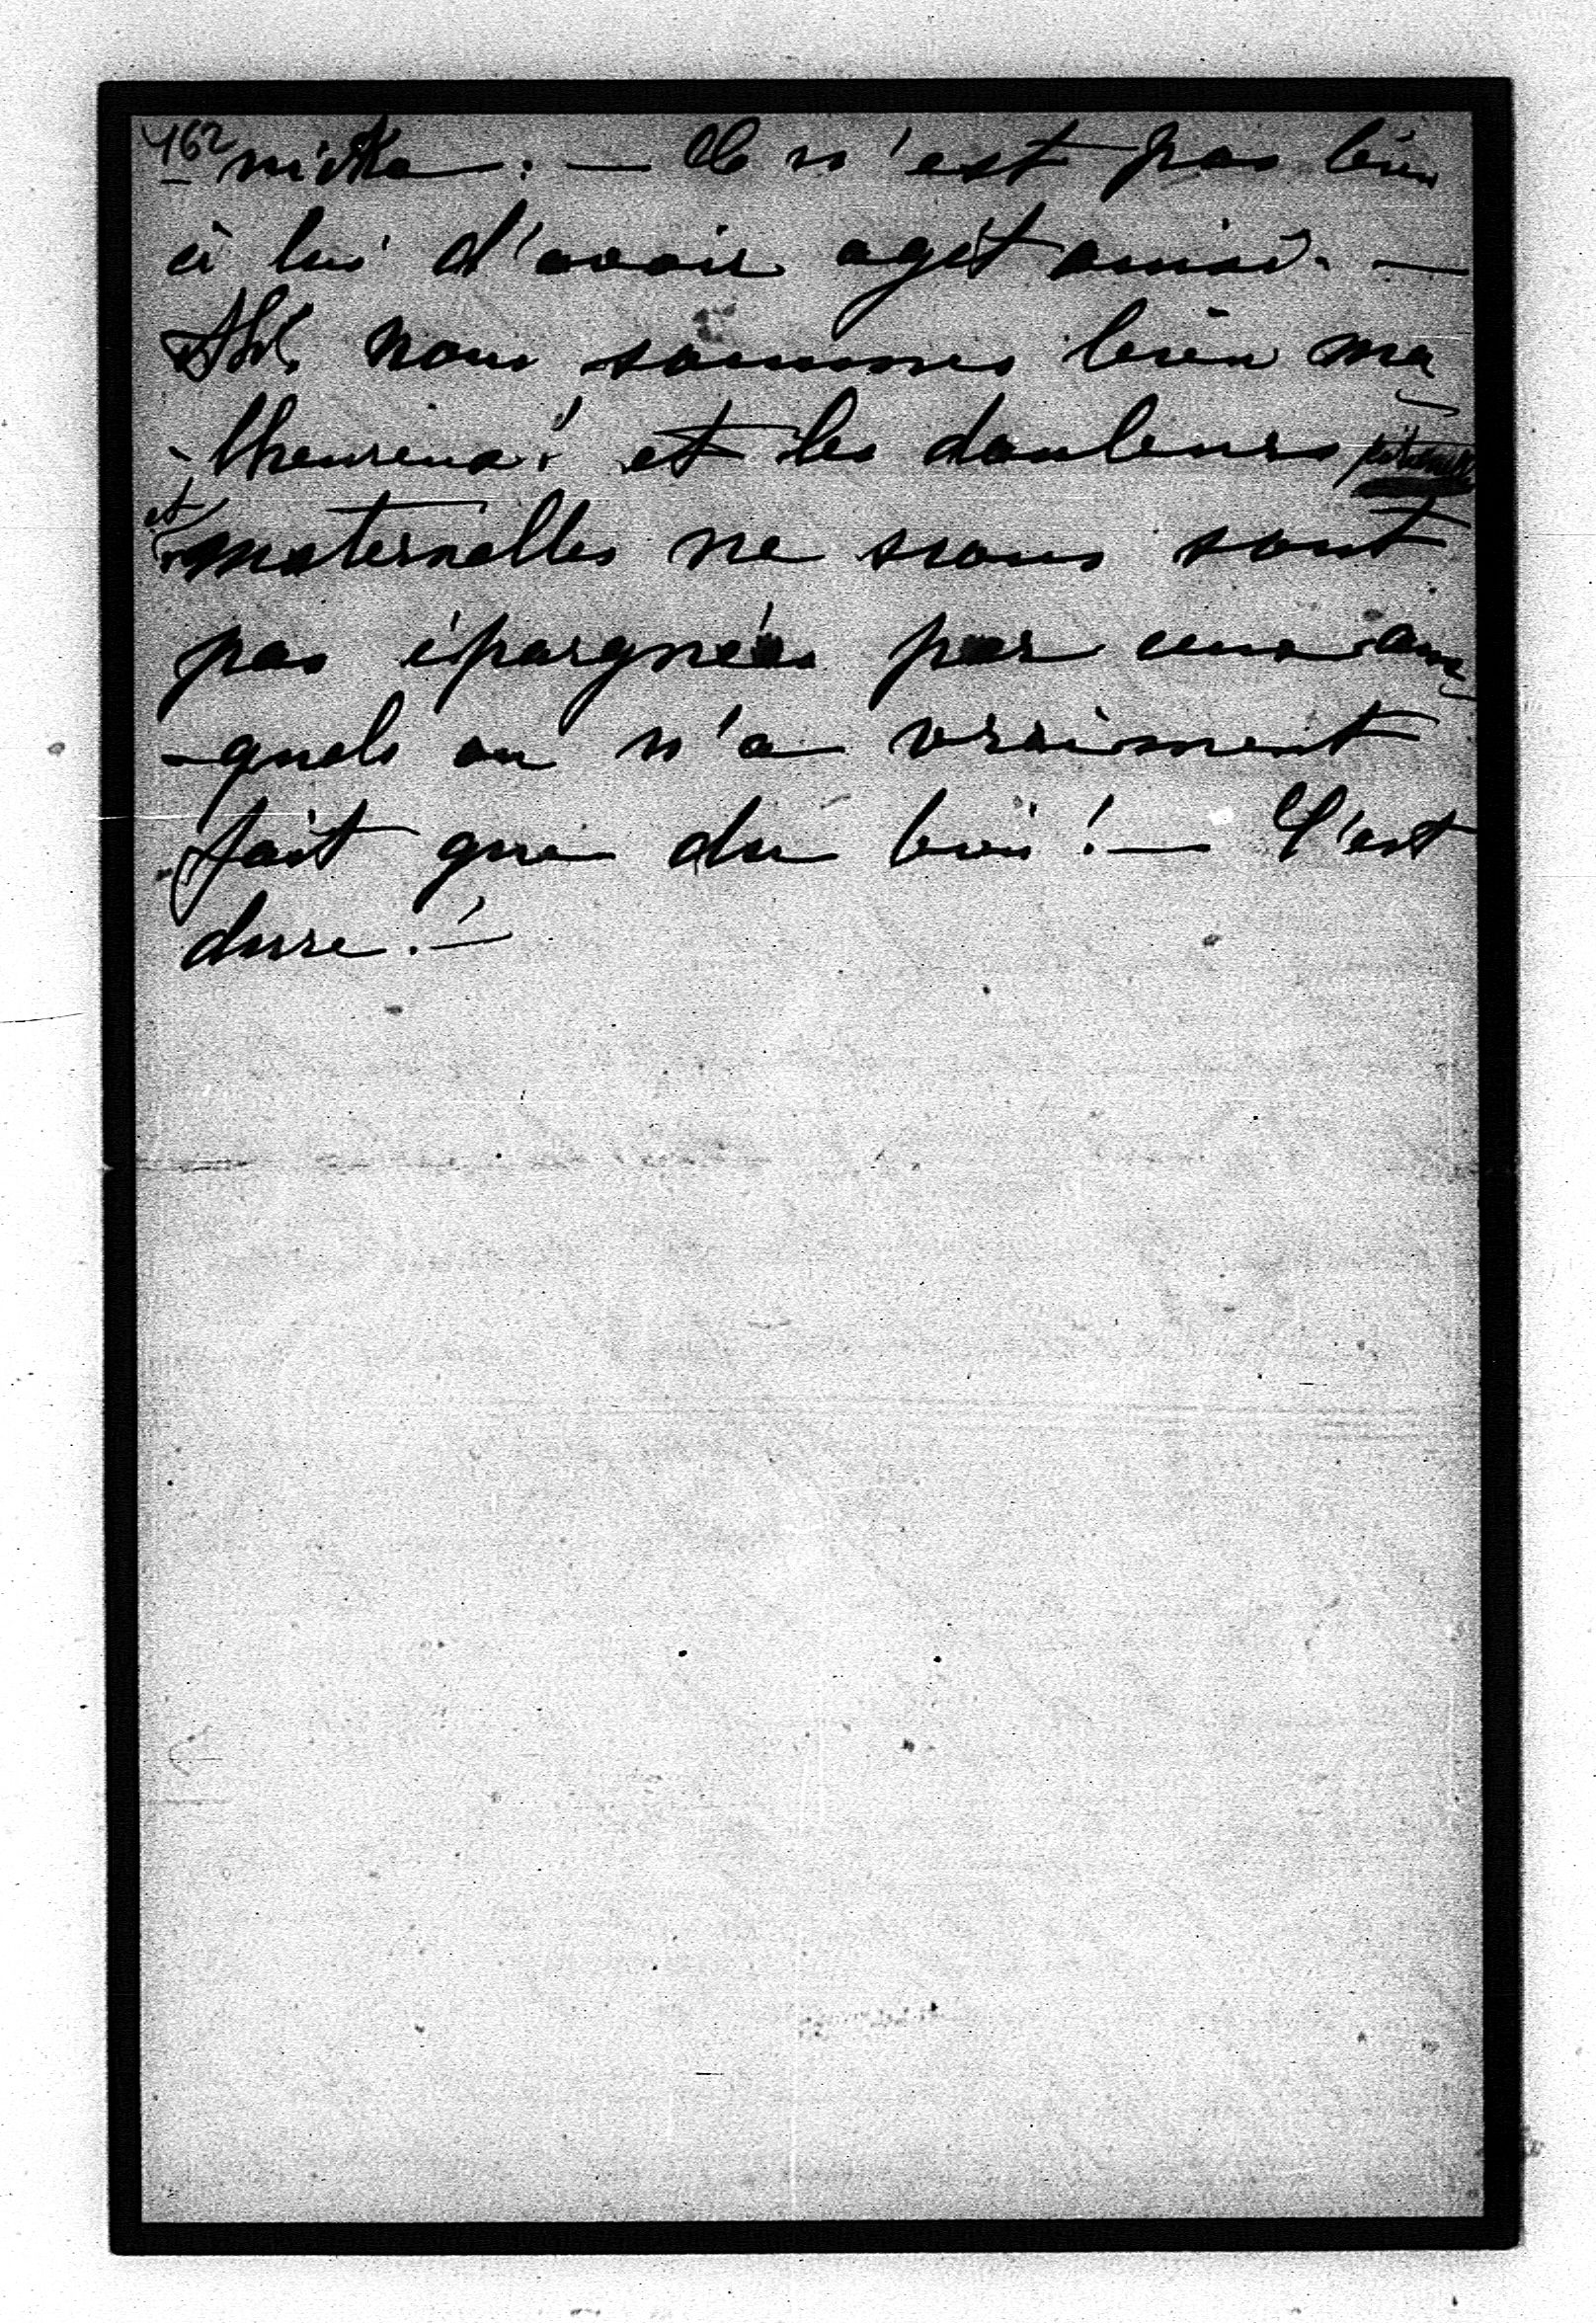 462
nivka. — Ce n'est pas bien
à lui d'avoir agit ainsi. —
Ah! nous sommes bien ma
-lheureux! et les douleurs
et maternelles ne nous sont
pas épargnées par ceux aux
-quels on n'a vraiment
fait que du bien! — C'est
durre! —